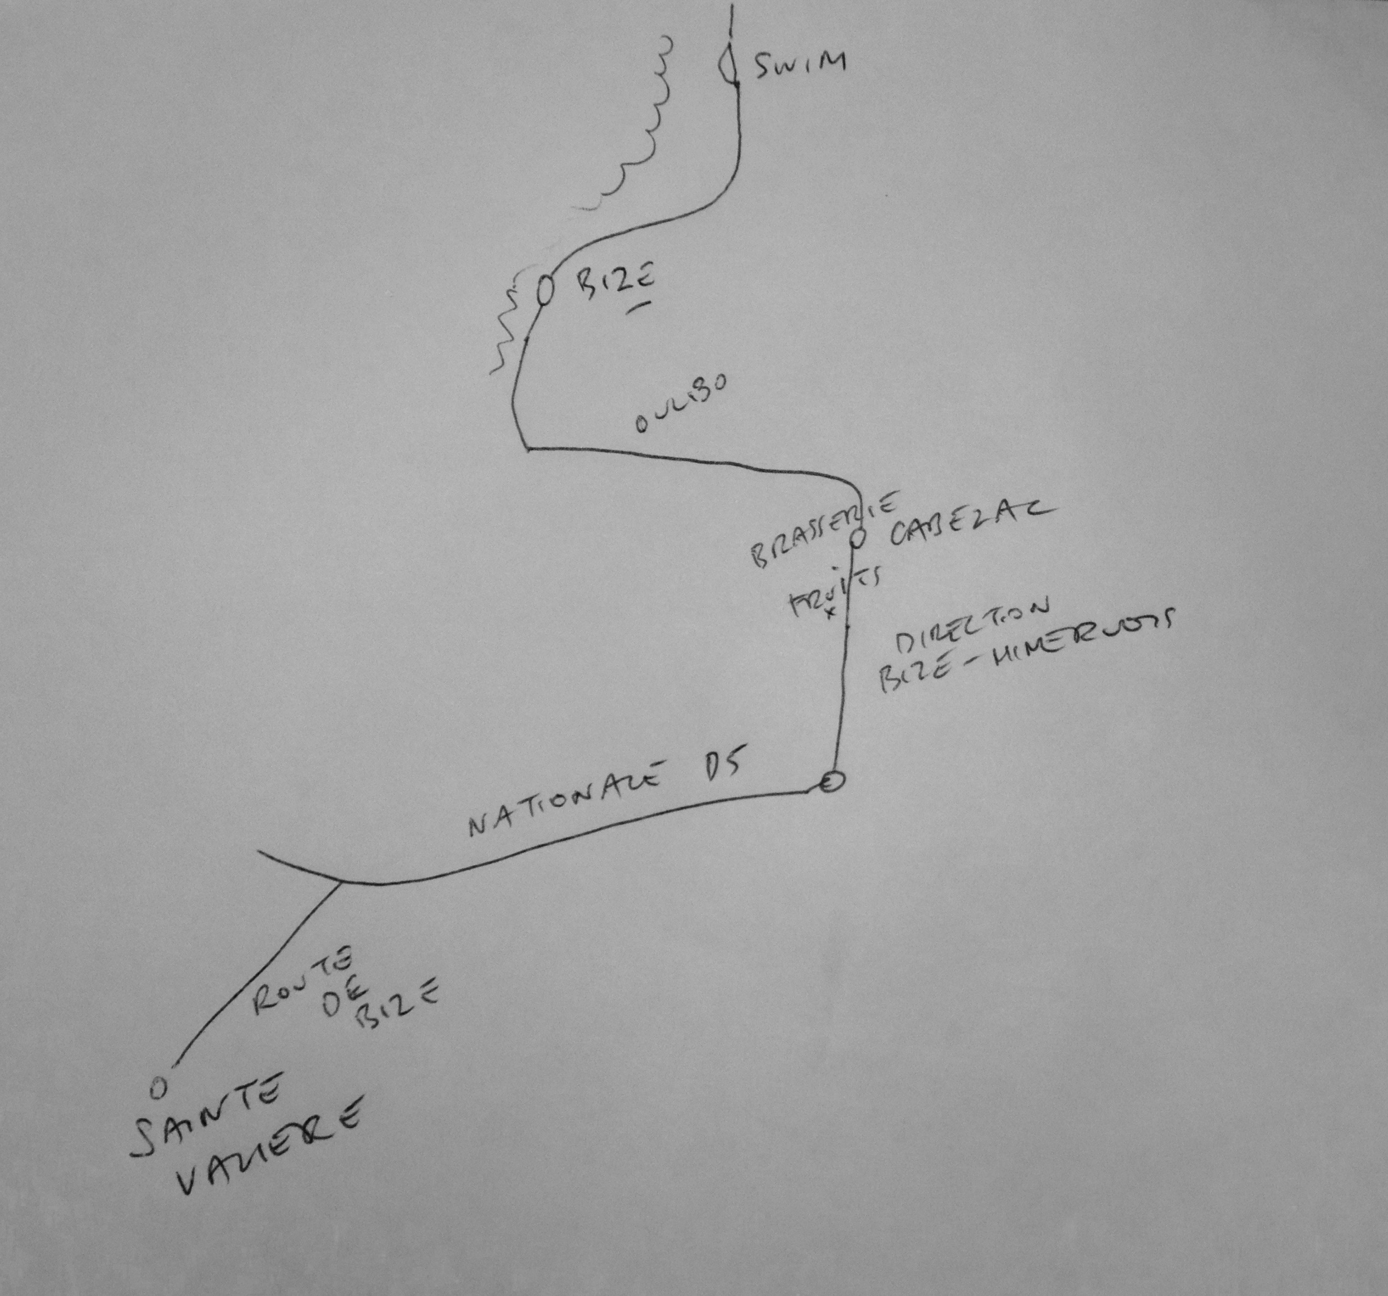 SWIM
BIZE
OULIBO
BRASSERIE
CABEZAC
FRUITS
x
DIRECTION
BIZE-MINERVOIS
NATIONALE D5
ROUTE
DE
BIZE
SAINTE
VALIERE